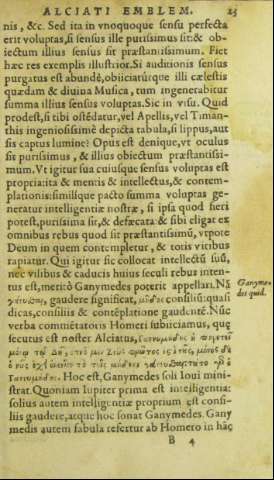 ALCIATI EMBLEM. 25
nis, &c. Sed ita in vnoquoque sensu perfecta
erit voluptas, si sensus ille purissimus sit: & ob-
iectum illius sensus sit præstantissimum. Fiet
hæc res exemplis illustrior. Si auditionis sensus
purgatus est abundè, obiiciatúrque illi cælestis
quædam & diuina Musica, tum ingenerabitur
summa illius sensus voluptas. Sic in visu. Quid
prodest, si tibi ostēdatur, vel Apellis, vel Timan-
this ingeniosissimè depicta tabula, si lippus, aut
sis captus lumine? Opus est denique, vt oculus
sit purissimus, & illius obiectum præstantissi-
mum. Vt igitur sua cuiusque sensus voluptas est
propria: ita & mentis & intellectus, & contem-
plationis: similíque pacto summa voluptas ge-
neratur intelligentiæ nostræ, si ipsa quod fieri
potest, purissima sit, & defæcata & sibi eligat ex
omnibus rebus quod sit præstantissimū, vtpote
Deum in quem contempletur, & totis viribus
rapiatur. Qui igitur sic collocat intellectū suū,
nec vilibus & caducis huius seculi rebus inten-
tus est, meritò Ganymedes poterit appellari. Nā
gaudere significat, consiliū: quasi
dicas, consiliis & contēplatione gaudentē. Nūc
verba commētatoris Homeri subiiciamus, quę
secutus est noster Alciatus,
Hoc est, Ganymedes soli Ioui mini-
strat. Quoniam Iupiter prima est intelligentia:
solius autem intelligentiæ proprium est consi-
liis gaudere, atque hoc sonat Ganymedes. Gany
medis autem fabula refertur ab Homero in hāc
Ganyme-
des quid.
B 4